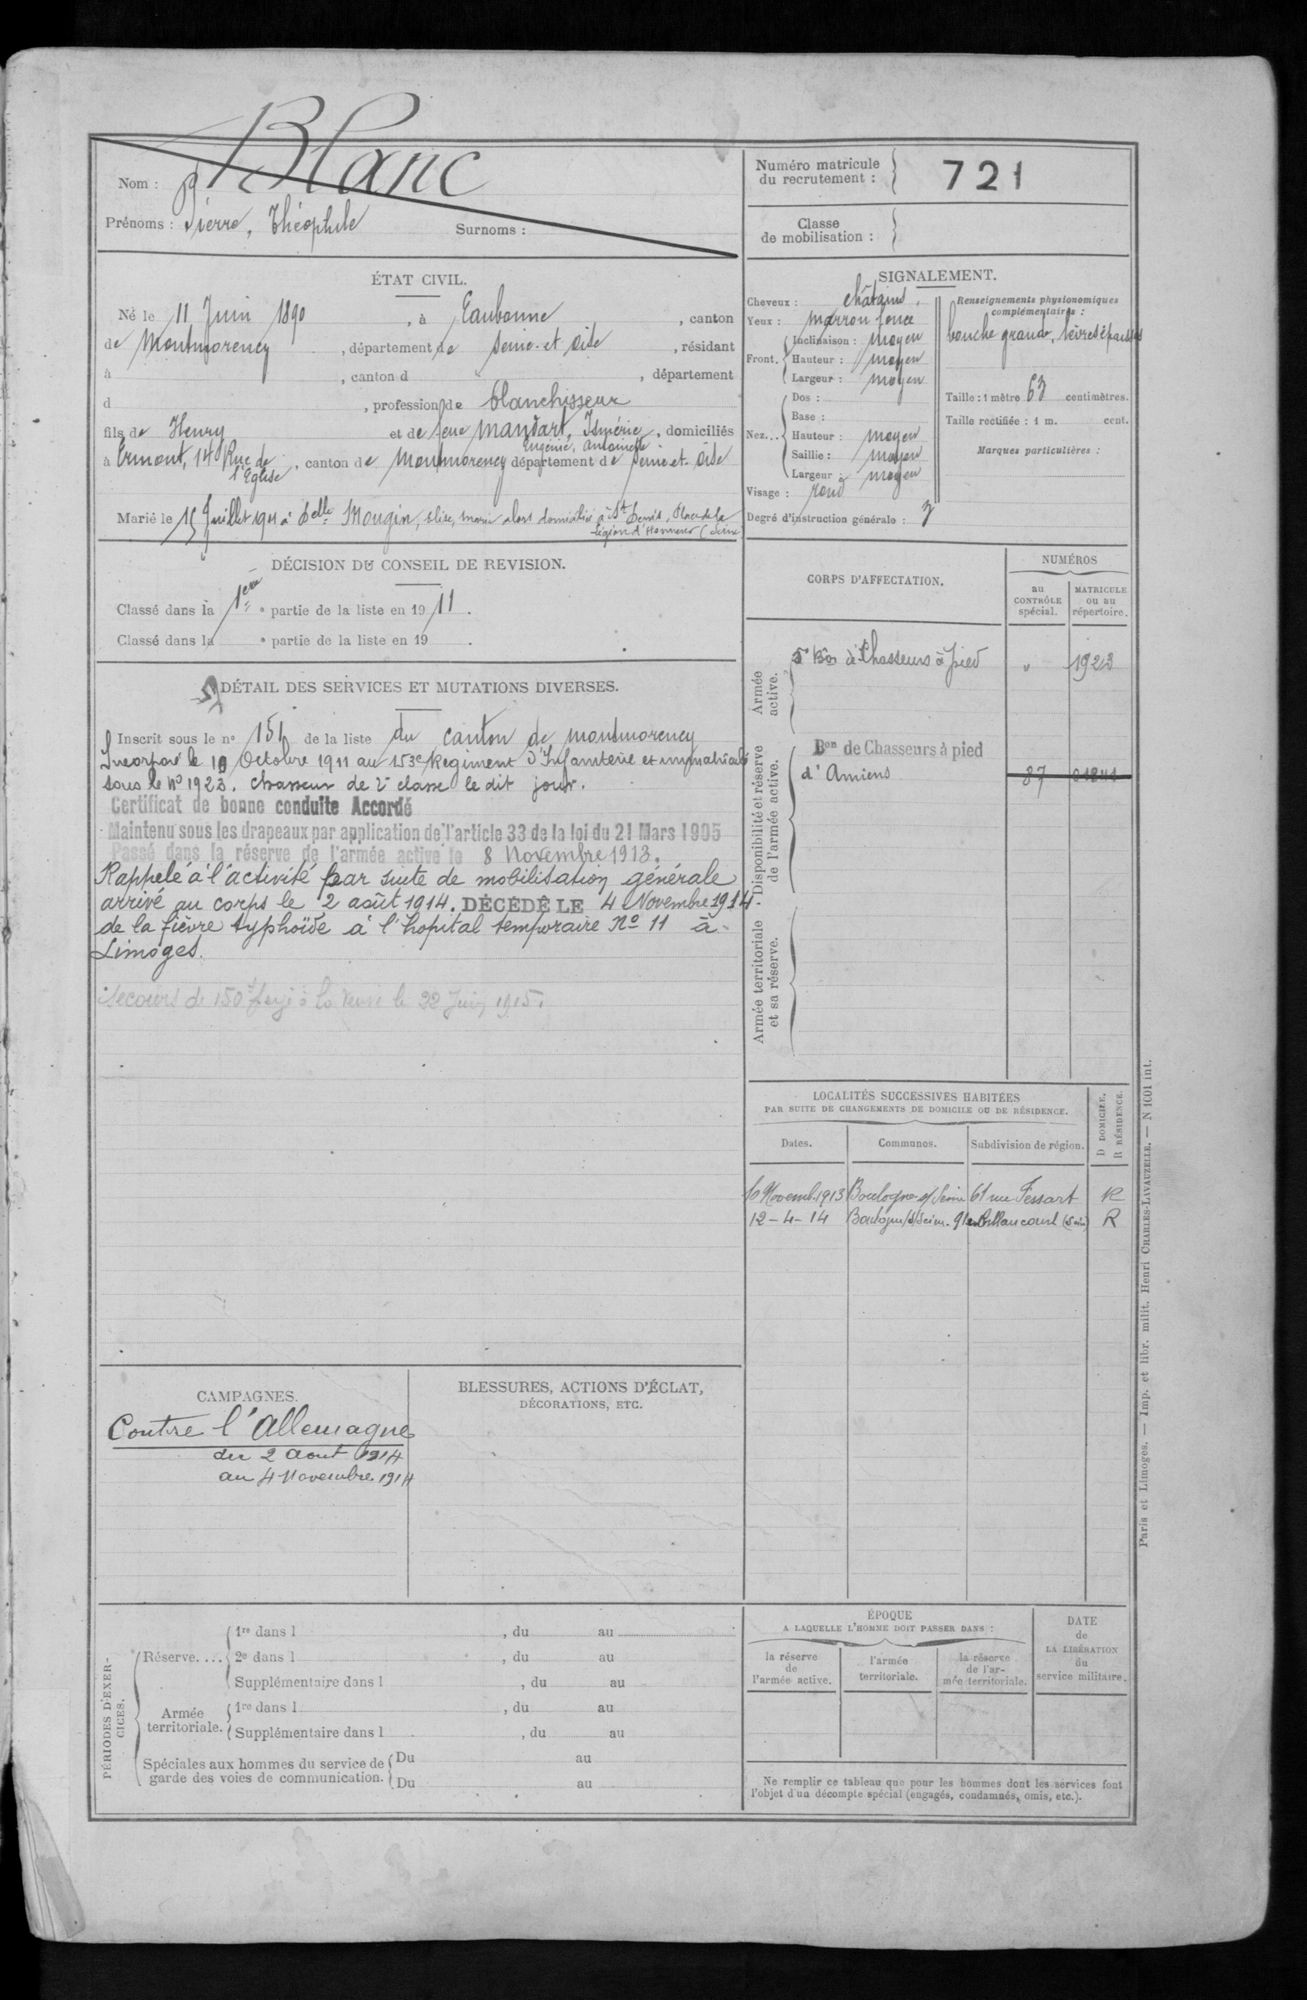 Blanc
Nom :
Prénoms : Pierre, Théophile Surnoms :
Numéro matricule du recrutement : 721
Classe de mobilisation :
ÉTAT CIVIL.
Né le 11 Juin 1890, à Eaubonne, canton
de Montmorency, département de Seine-et-Oise, résidant
à , canton d , département
d , profession de blanchisseur
fils de Henry et de feue Mansart, Ismérie, domiciliés
Eugénie, Antoinette
à Ermont, 14 Rue de l'Eglise, canton de Montmorency département de Seine-et-Oise
Marié le 15 Juillet 1911 à Delle Mougin, Marie alors domiciliée à St Denis, Place de la
Légion d'Honneur (Seine
SIGNALEMENT.
Cheveux : châtains.
Yeux : marron foncé
Front. Inclinaison : moyen
Hauteur : moyen
Largeur : moyen
Nez... Dos :
Base :
Hauteur : moyen
Saillie : moyen
Largeur : moyen
Visage : rond
Degré d'instruction générale : 3
Renseignements physionomiques complémentaires :
bouche grande, lèvres épaisses
Taille : 1 mètre 63 centimètres.
Taille rectifiée : 1 m. cent.
Marques particulières :
DÉCISION DU CONSEIL DE REVISION.
Classé dans la 1ere partie de la liste en 1911.
Classé dans la e partie de la liste en 19 .
DÉTAIL DES SERVICES ET MUTATIONS DIVERSES.
Inscrit sous le no 151 de la liste du canton de Montmorency
Incorporé le 10 Octobre 1911 au 153e Régiment d'Infanterie et immatriculé
sous le No 1923. chasseur de 2e classe le dit jour.
Certificat de bonne conduite Accordé
Maintenu sous les drapeaux par application de l'article 33 de la loi du 21 Mars 1905
Passé dans la réserve de l'armée active le 8 Novembre 1913.
Rappelé à l'activité par suite de mobilisation générale
arrivé au corps le 2 août 1914. DÉCÉDÉ LE 4 Novembre 1914
de la fièvre typhoïde à l'hopital temporaire No 11 à
Limoges.
Secours de 150f payé à la Veuve le 22 Juin 1915.
CORPS D'AFFECTATION.
NUMÉROS
au CONTRÔLE spécial.
MATRICULE ou au répertoire.
Armée active.
5e Bon de Chasseurs à pied " 1923
Disponibilité et réserve de l'armée active.
Bon de Chasseurs à pied
d'Amiens 87
Armée territoriale et sa réserve.
LOCALITÉS SUCCESSIVES HABITÉES
PAR SUITE DE CHANGEMENTS DE DOMICILE OU DE RÉSIDENCE.
Dates. Communes. Subdivision de région. D DOMICILE. R RÉSIDENCE.
Novemb. 1913 Boulogne s/ Seine 61 rue Fessart R
12-4-14 Boulogne s/ Seine. Billancourt R
CAMPAGNES.
Contre l'Allemagne
du 2 Aout 1914
au 4 Novembre 1914
BLESSURES, ACTIONS D'ÉCLAT,
DÉCORATIONS, ETC.
PÉRIODES D'EXERCICES.
Réserve.... 1re dans l , du au
2e dans l , du au
Supplémentaire dans l , du au
Armée territoriale. 1re dans l , du au
Supplémentaire dans l , du au
Spéciales aux hommes du service de garde des voies de communication. Du au
Du au
ÉPOQUE
A LAQUELLE L'HOMME DOIT PASSER DANS :
la réserve de l'armée active.
l'armée territoriale.
la réserve de l'armée territoriale.
DATE de LA LIBÉRATION du service militaire.
Ne remplir ce tableau que pour les hommes dont les services font
l'objet d'un décompte spécial (engagés, condamnés, omis, etc.).
Paris et Limoges. — Imp. et libr. milit. Henri CHARLES-LAVAUZELLE. — N 1001 int.